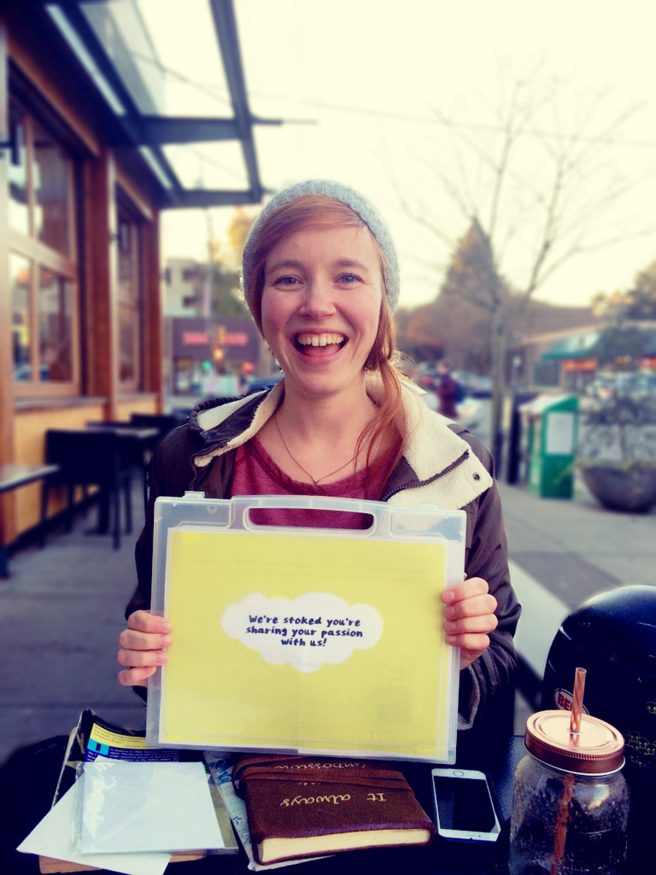 We're stoked you're
sharing your passion
with us!
It always
impossible
BELL